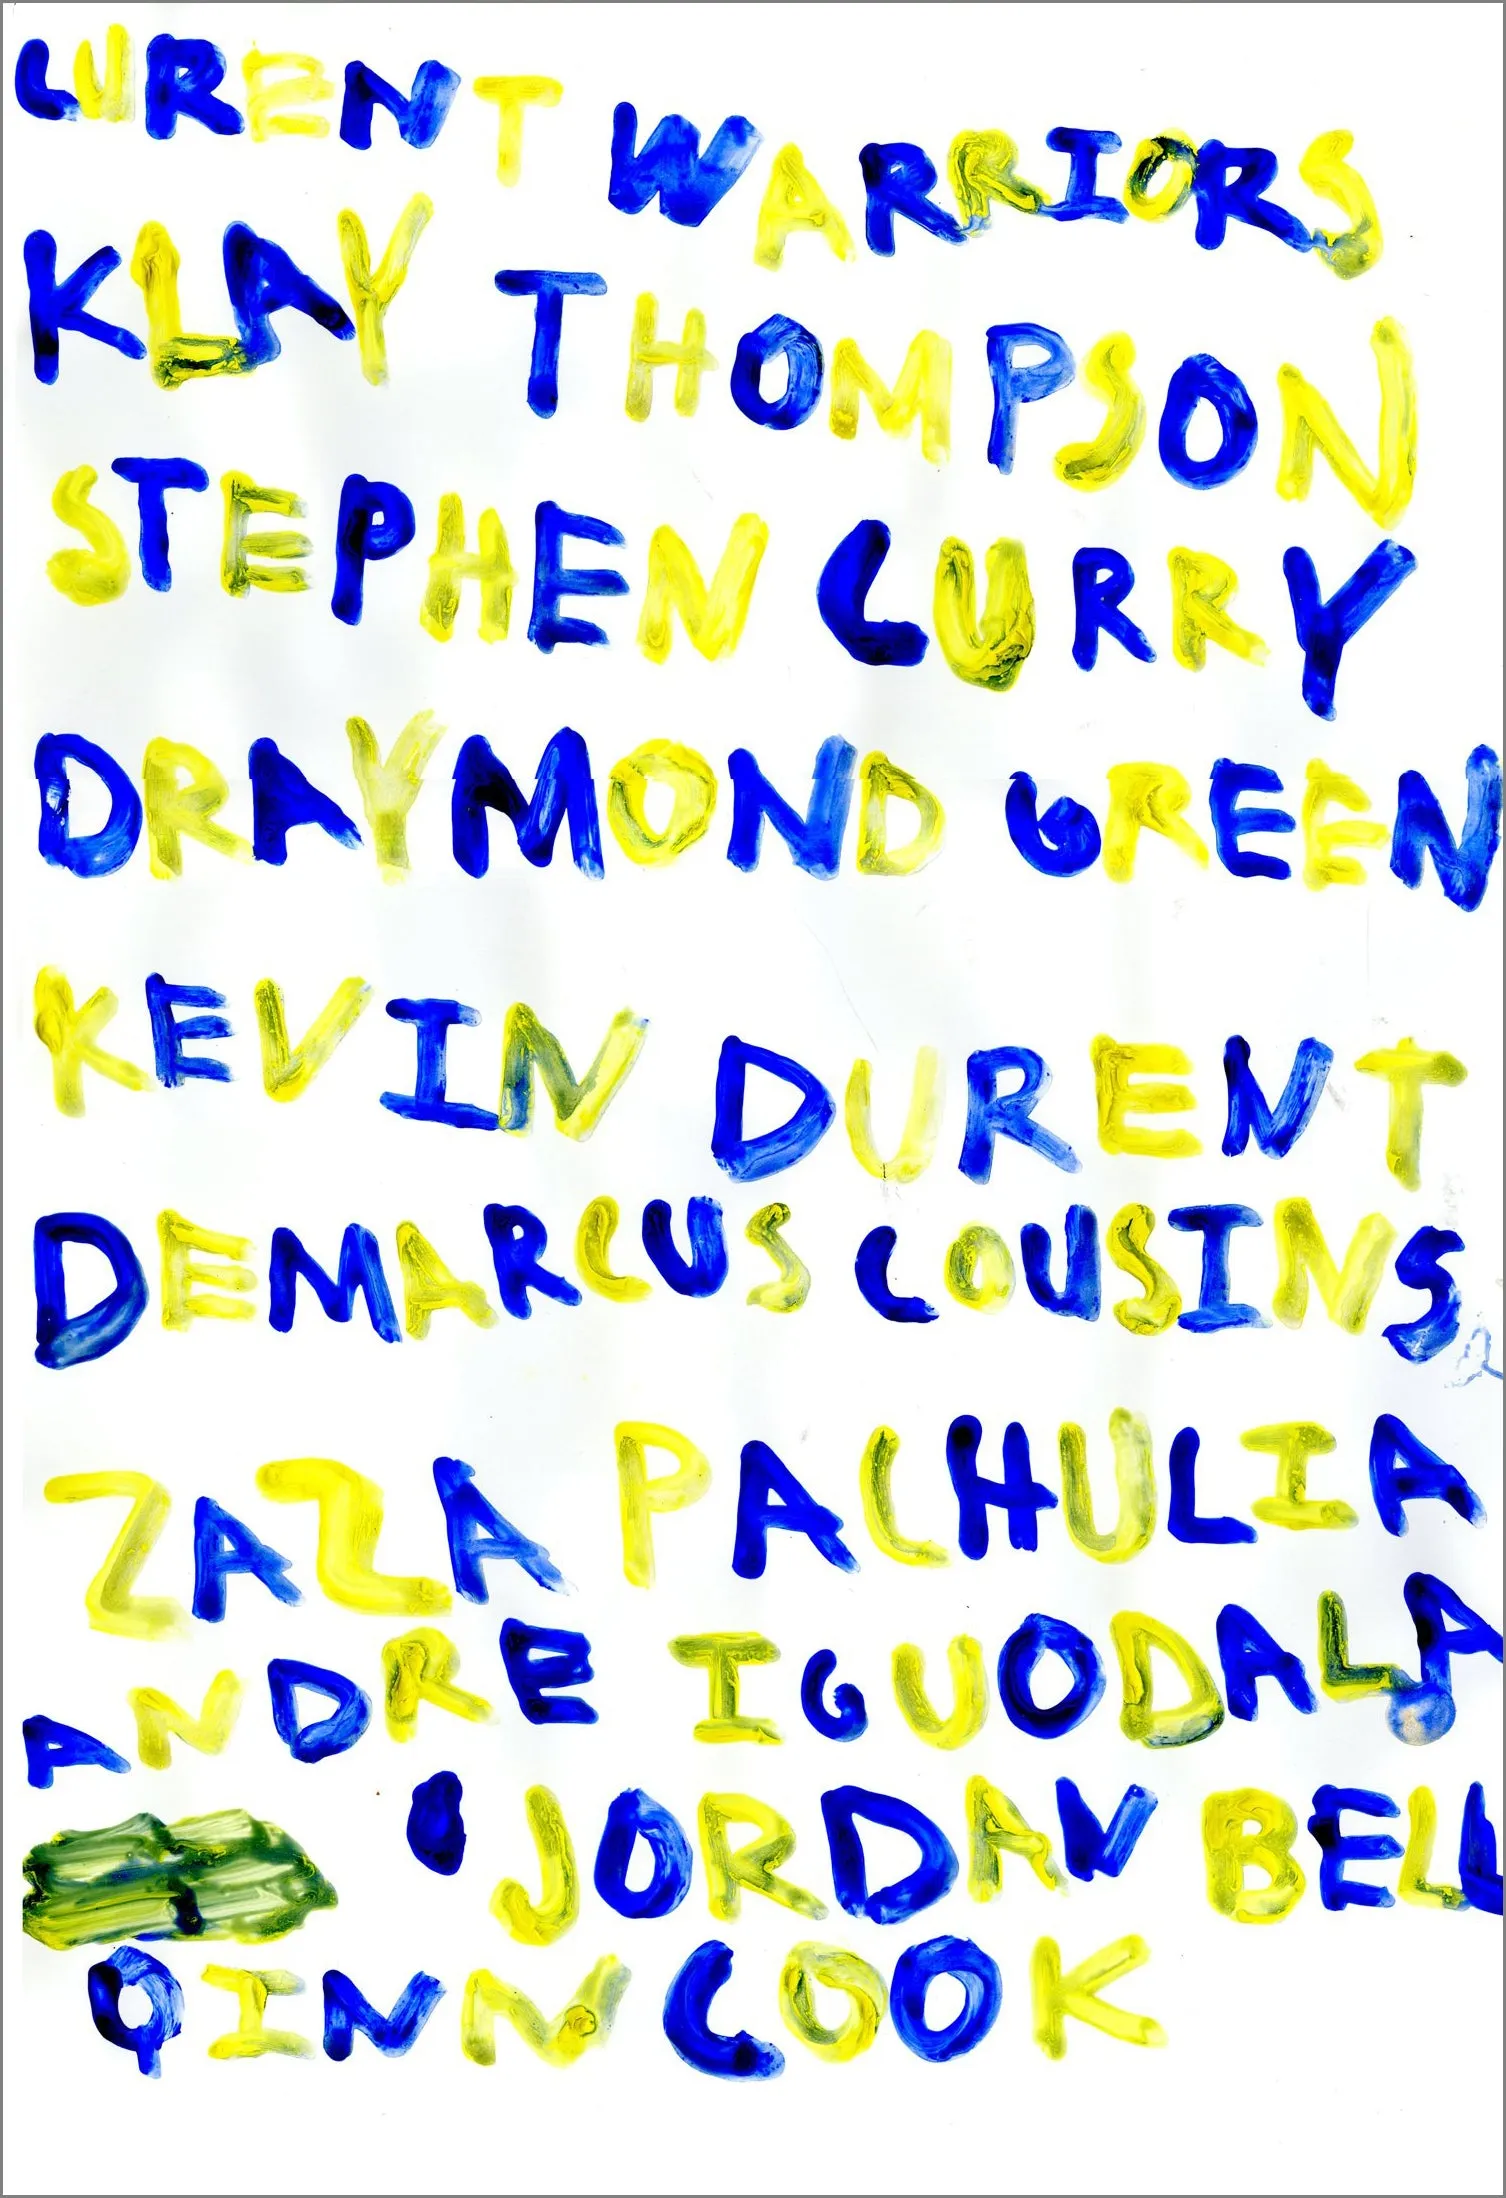 CURENT WARRIORS
KLAY THOMPSON
STEPHEN CURRY
DRAYMOND GREEN
KEVIN DURENT
DEMARCUS COUSINS
ZAZA PACHULIA
ANDRE IGUODALA
JORDAN BELL
QINN COOK